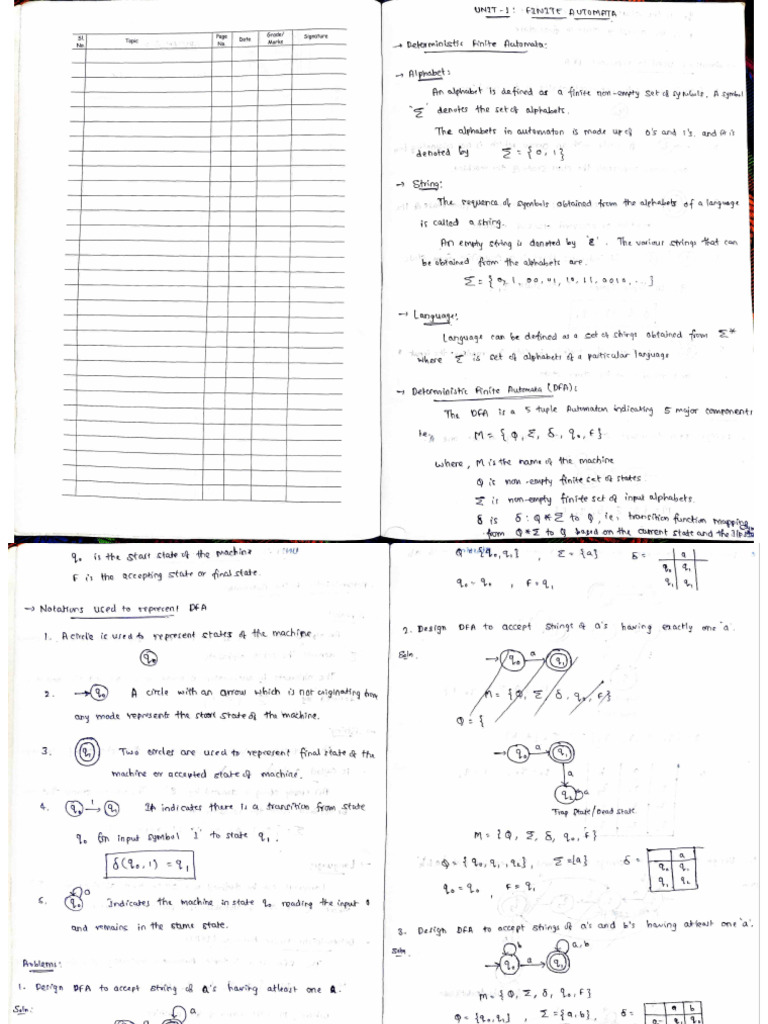 Sl. No
Topic
Page No.
Date
Grade/ Marks
Signature
UNIT-1: FINITE AUTOMATA
→ Deterministic Finite Automata:
→ Alphabet:
An alphabet is defined as a finite non-empty set of symbols. A symbol
'Σ' denotes the set of alphabets.
The alphabets in automaton is made up of 0's and 1's. and it is
denoted by Σ = {0, 1}
→ String:
The sequence of symbols obtained from the alphabets of a language
is called a string.
An empty string is denoted by 'ε'. The various strings that can
be obtained from the alphabets are.
Σ = {0, 1, 00, 01, 10, 11, 0010, ...}
→ Language:
Language can be defined as a set of strings obtained from Σ*
where 'Σ' is set of alphabets of a particular language
→ Deterministic Finite Automata (DFA):
The DFA is a 5 tuple Automaton indicating 5 major components
i.e., M = {Q, Σ, δ, q₀, F}
where, M is the name of the machine
Q is non-empty finite set of states.
Σ is non-empty finite set of input alphabets.
δ is δ: Q*Σ to Q, i.e., transition function mapping
from Q*Σ to Q based on the current state and the
q₀ is the start state of the machine
F is the accepting state or final state.
→ Notations used to represent DFA
1. A circle is used to represent states of the machine.
q₀
2. → q₀ A circle with an arrow which is not originating from
any node represents the start state of the machine.
3. q₁ Two circles are used to represent final state of the
machine or accepted state of machine.
4. q₀ 1→ q₁ It indicates there is a transition from state
q₀ on input symbol '1' to state q₁.
δ(q₀, 1) = q₁
5. q₀ a Indicates the machine in state q₀ reading the input
and remains in the same state.
Problems:
1. Design DFA to accept string of a's having atleast one a.
Soln:
a
Q {q₀, q₁} , Σ = {a} δ =
a
q₀ q₁
q₁ q₁
q₀ = q₀ , F = q₁
2. Design DFA to accept strings of a's having exactly one 'a'.
Soln.
→ q₀ a→ q₁
M = {Q, Σ, δ, q₀, F}
Q = {
→ q₀ a→ q₁
a
q₂ a
Trap State/Dead state
M = {Q, Σ, δ, q₀, F}
Q = {q₀, q₁, q₂}, Σ = {a} δ =
a
q₀ q₁
q₁ q₂
q₀ = q₀ , F = q₁
3. Design DFA to accept strings of a's and b's having atleast one 'a'.
Soln
b a, b
→ q₀ a→ q₁
M = {Q, Σ, δ, q₀, F}
Q = {q₀, q₁} , Σ = {a, b}, δ =
a b
q₁ q₀